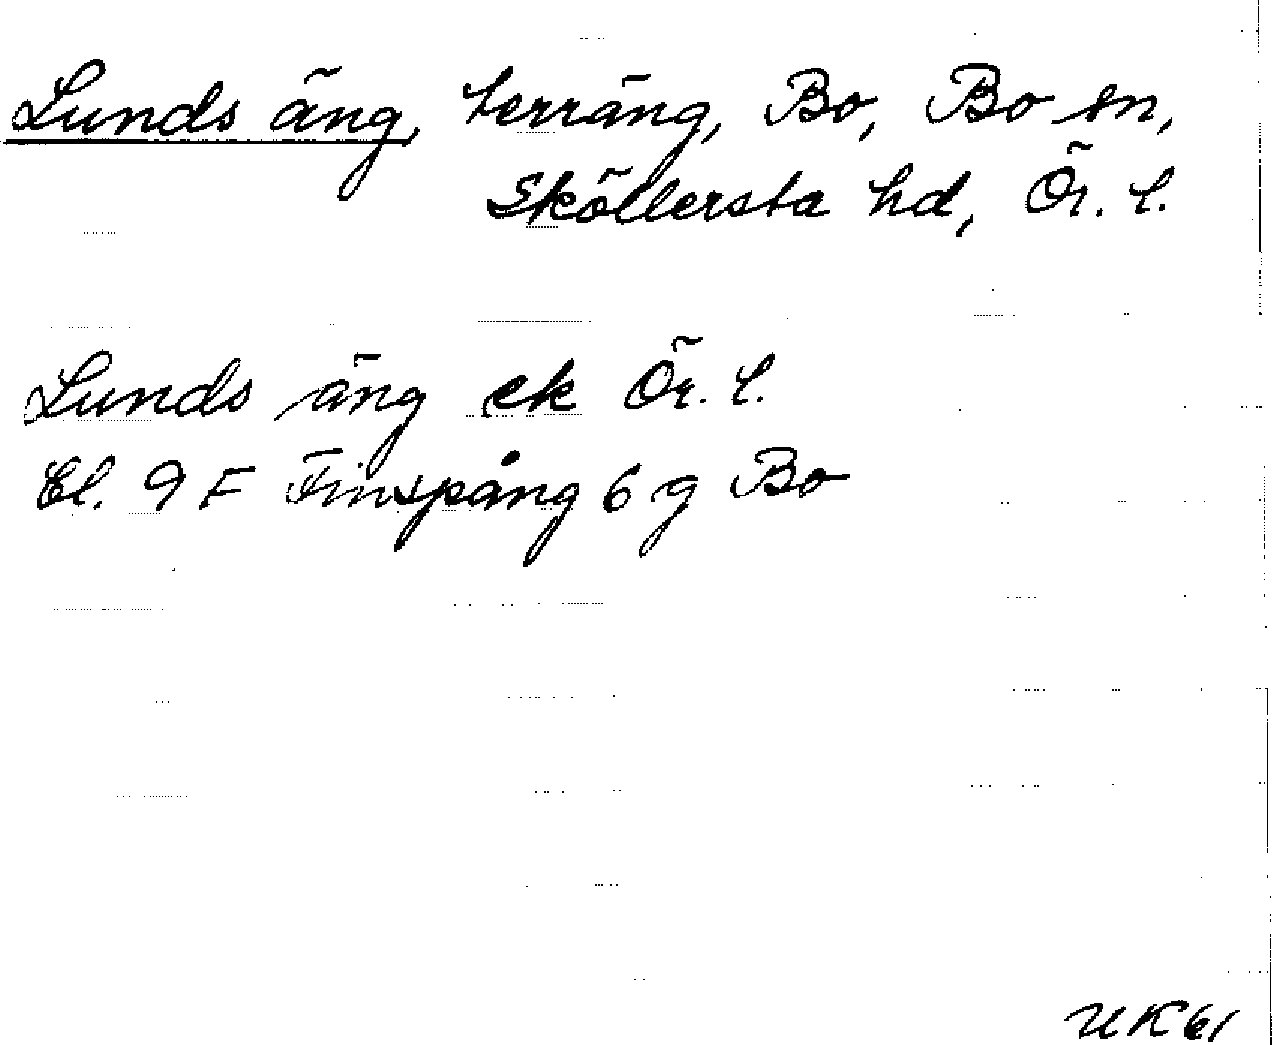 Lunds äng, terräng, Bo, Bo sn,
Sköllersta hd, Ör. l.
Lunds äng ek Ör. l.
Bl. 9 F Finspång 6 g Bo
UK 61